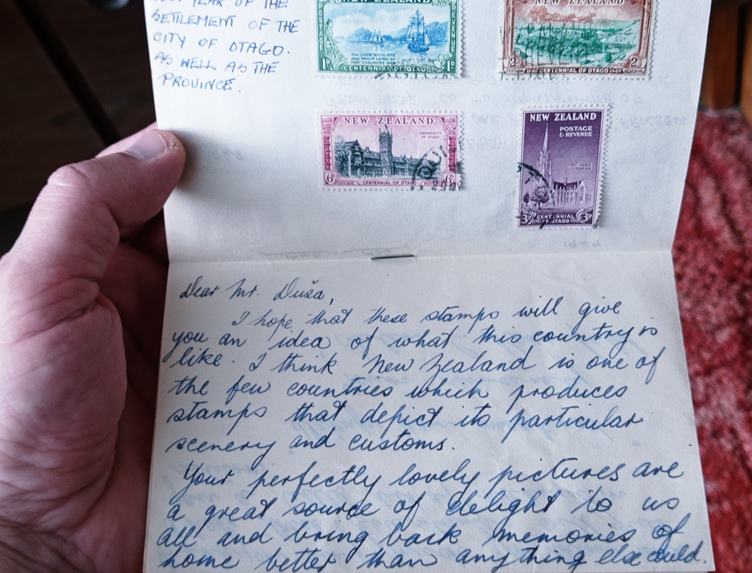 YEAR OF THE
SETTLEMENT OF THE
CITY OF OTAGO.
AS WELL AS THE
PROVINCE.
NEW ZEALAND
1D
CENTENNIAL OF OTAGO
NEW ZEALAND
2D
CENTENNIAL OF OTAGO
NEW ZEALAND
6D
CENTENNIAL OF OTAGO
NEW ZEALAND
POSTAGE
& REVENUE
3D CENTENNIAL OF OTAGO 3D
Dear Mr. Duša,
I hope that these stamps will give
you an idea of what this country is
like. I think New Zealand is one of
the few countries which produces
stamps that depict its particular
scenery and customs.
Your perfectly lovely pictures are
a great source of delight to us
all and bring back memories of
home better than anything else could.